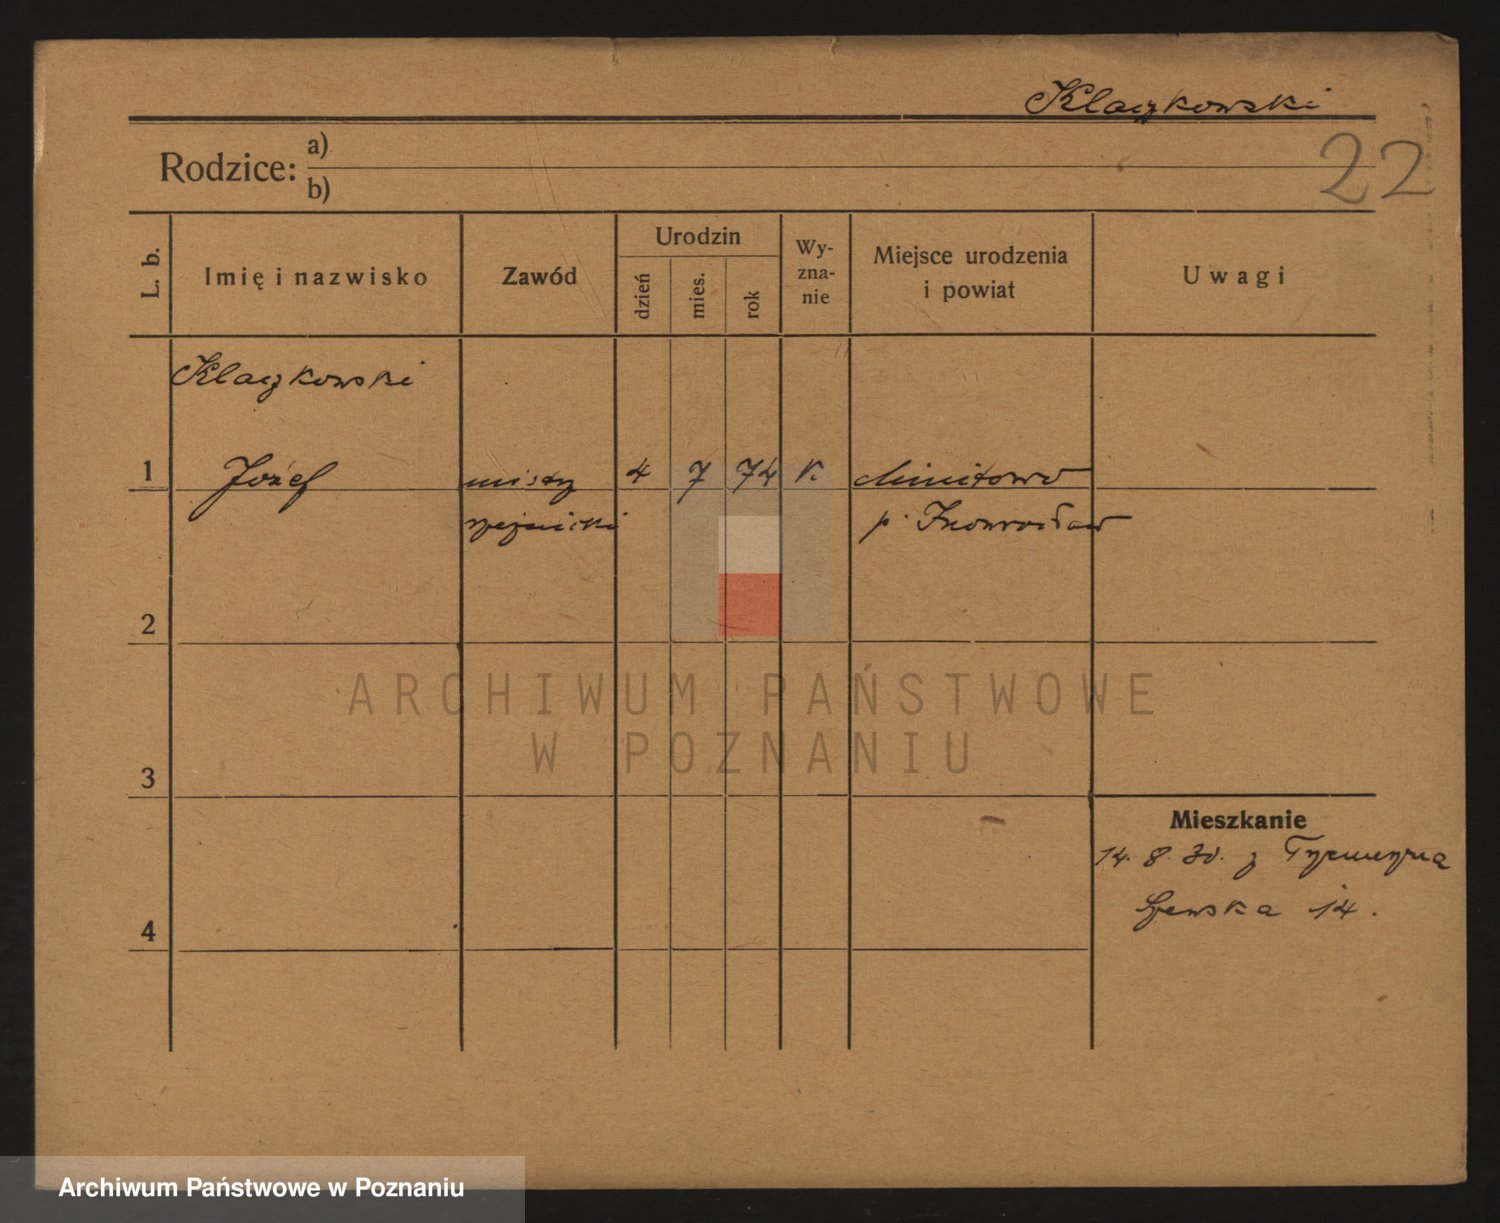 Klaczkowski
22
Rodzice: a)
b)
L. b.
Imię i nazwisko
Zawód
Urodzin
dzień
mies.
rok
Wy-
zna-
nie
Miejsce urodzenia
i powiat
Uwagi
Klaczkowski
1 Józef mistrz 4 7 74 k.
p. Inowrocław
2
ARCHIWUM PAŃSTWOWE
W POZNANIU
3
Mieszkanie
14. 8. 30. z
4
Szewska 14.
Archiwum Państwowe w Poznaniu